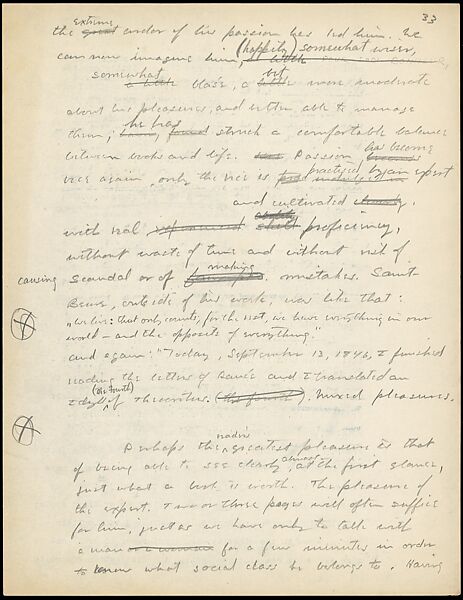 33
extreme
the great ardor of his passion has led him. We
can now imagine him, (happily) somewhat wiser,
somewhat a little blasé, a bit little more moderate
about his pleasures, and better able to manage
them; he has found struck a comfortable balance
between books and life. Passion has become
vice again, only the vice is practised by an expert
and cultivated
with real ability skill proficiency,
without waste of time and without risk of
causing scandal or of making mistakes. Saint
Beuve, outside of his work, was like that:
"We live: that only counts; for the rest, we have everything in our
world – and the opposite of everything."
and again: "Today, September 13, 1846, I finished
reading the letters of Rancé and I translated an
Idyll (the fourth) of Theocritus. (the fourth). Mixed pleasures.
Perhaps the reader's greatest pleasure is that
of being able to see clearly, almost at the first glance,
just what a book is worth. The pleasure of
the expert. Two or three pages will often suffice
for him, just as we have only to talk with
a man or a woman for a few minutes in order
to know what social class he belongs to. Having